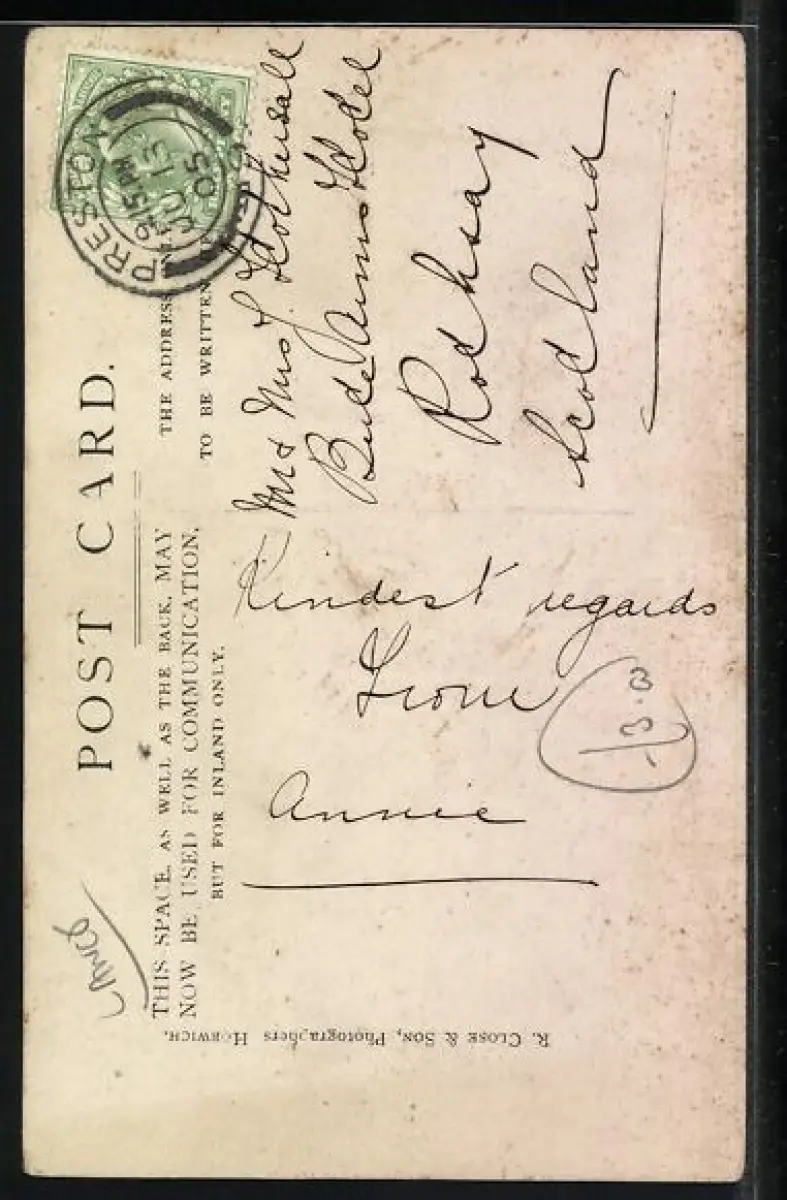 POST CARD.
THIS SPACE, AS WELL AS THE BACK, MAY
NOW BE USED FOR COMMUNICATION,
BUT FOR INLAND ONLY.
THE ADDRESS
TO BE WRITTEN
PRESTON
9.15 PM
JU 13
05
Kindest regards
From
Annie
Mr & Mrs J. Hothersall
Bute Arms Hotel
Rothsay
Scotland
R. CLOSE & SON, Photographers HORWICH.